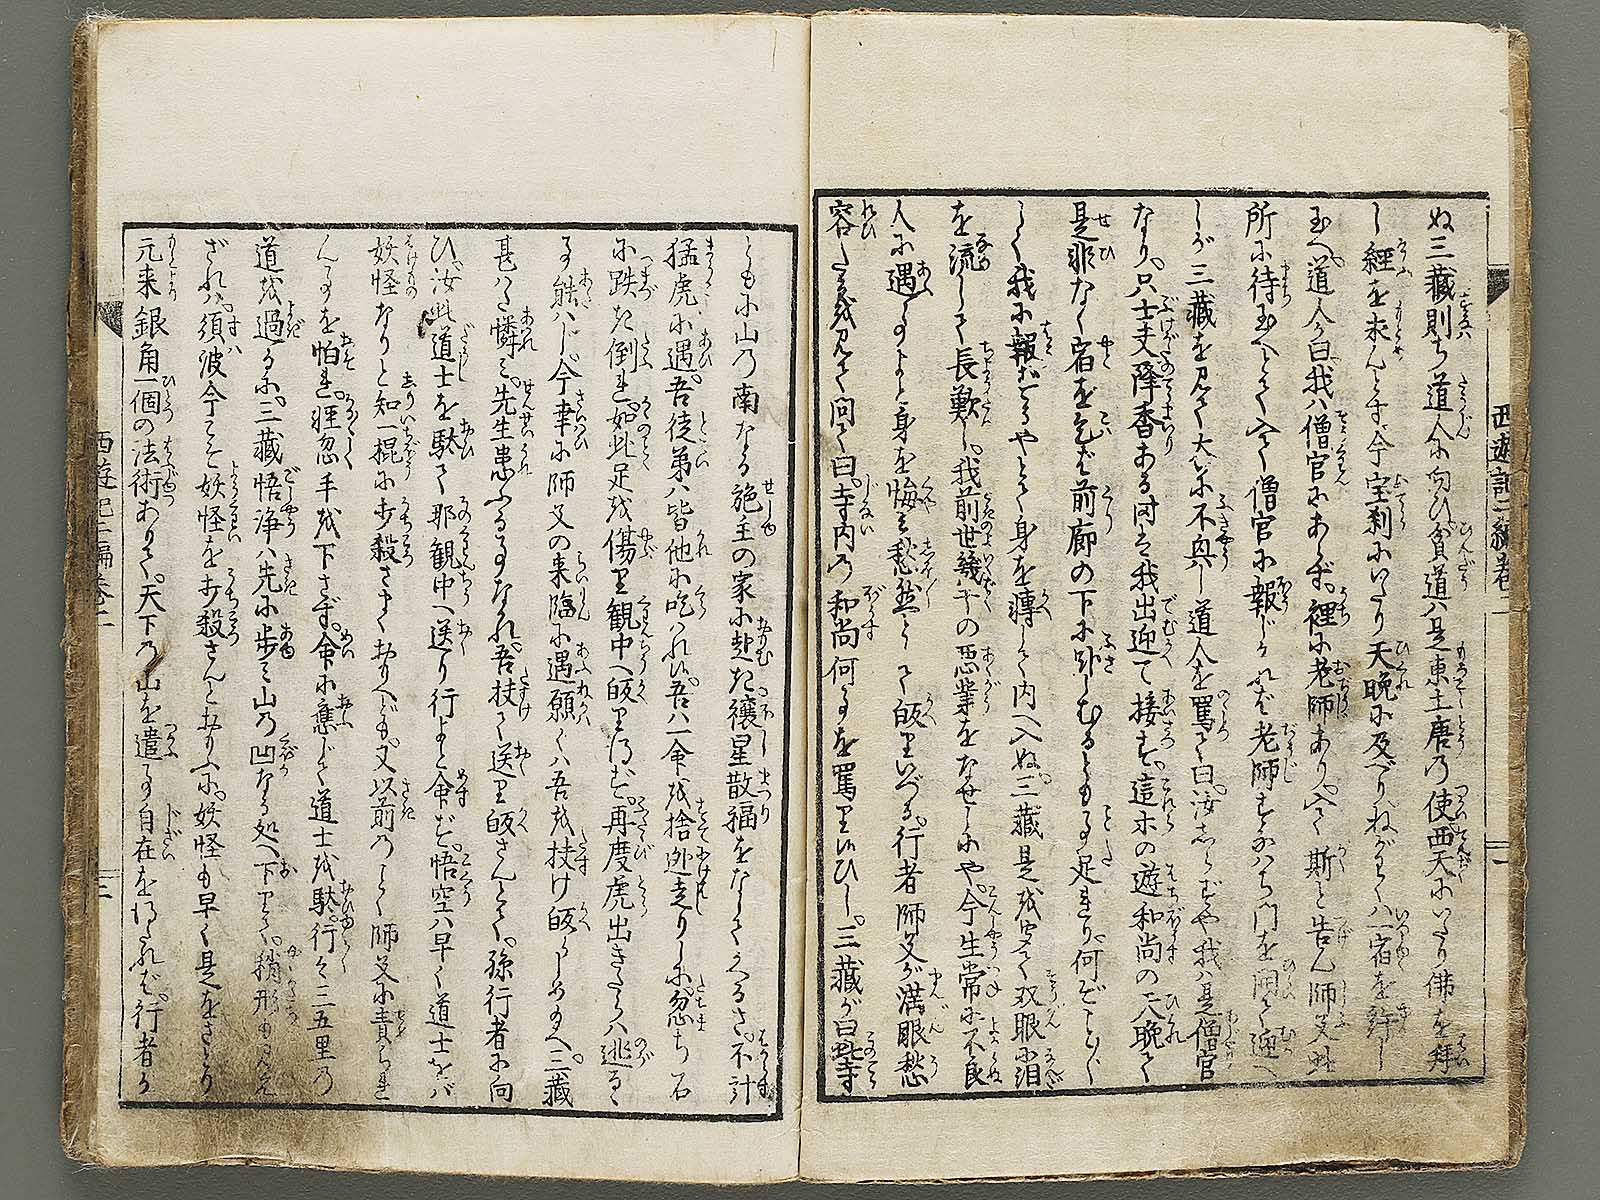 ぬ三藏則ち道人に向ひ貧道ハ是東土唐の使西天にいたり佛を拜
し經を求んとす今宝刹にいたり天晩に及べりねがわくハ一宿を許し
玉へ道人が曰我ハ僧官にあらず裡に老師あり入て斯と告ん師父此
所に待玉へとて入て僧官に報じけれバ老師すなハち門を開て迎へ
しが三藏を見て大に不興し道人を罵て曰汝しらずや我ハ是僧官
なり只士夫降香ある时こそ我出迎て接す這等の遊和尚の天晩て
是非なく宿を乞ば前廊の下に卧しむるとも事足れり何ぞことごとし
く我に報ずるやとて身を轉して内へ入ぬ三藏是を聞て双眼に泪
を流して長歎し我前世幾千の悪業をなせしにや今生常に不良
人に遇ことよと身を悔み愁然として皈りいづる行者師父が満眼愁
容たるを見て问て曰寺内の和尚何事を罵り候ひし三藏が曰此寺
西遊記二編卷二
ともに山の南なる施主の家に赴き禳星散福をなしてかへるさ不計
猛虎に遇吾徒弟ハ皆他に吃ハれ候吾ハ一命を捨迯走りしに忽ち石
に跌き倒れ如此足を傷り観中へ皈り得ず再度虎出きたらハ逃るゝ
事能ハじ今幸に師父の来臨に遇願くハ吾を扶け皈らしめ玉へ三藏
甚ハだ憐ミ先生患ふる事なかれ吾扶て送り皈さんとて孫行者に向
ひ汝此道士を駄て那観中へ送り行よと命ず悟空ハ早く道士をバ
妖怪なりと知一棍に打殺さまくおもへども又以前のごとく師父に責られ
んことを怕れ猩忽手を下さず命に應じて道士を駄行こと三五里の
道を過るに三藏悟浄ハ先に歩ミ山の凹なる処へ下りて稍形も見え
ざれハ須波今こそ妖怪を打殺さんとおもふに妖怪も早く是をさとり
元来銀角一個の法術ありて天下の山を遣ふ事自在を得たれバ行者が
西遊記二編卷二